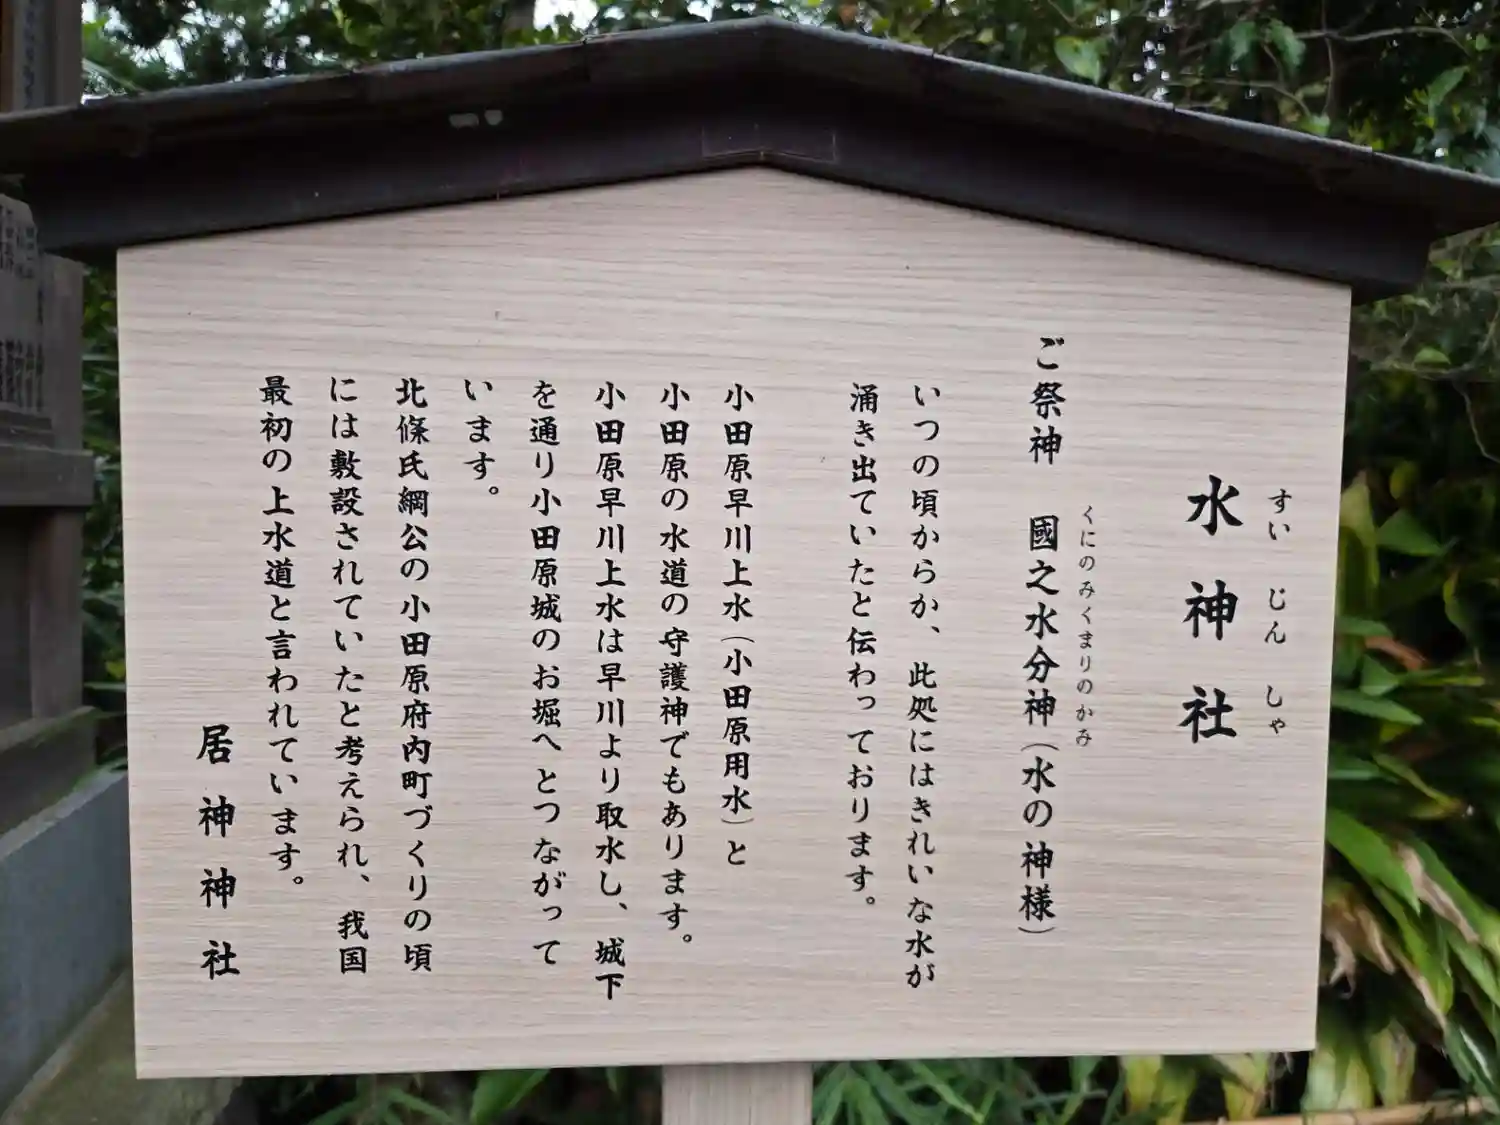 水神社
すいじんしゃ
ご祭神　國之水分神（水の神様）
くにのみくまりのかみ
いつの頃からか、此処にはきれいな水が
涌き出ていたと伝わっております。
小田原早川上水（小田原用水）と
小田原の水道の守護神でもあります。
小田原早川上水は早川より取水し、城下
を通り小田原城のお堀へとつながって
います。
北條氏綱公の小田原府内町づくりの頃
には敷設されていたと考えられ、我国
最初の上水道と言われています。
居神神社